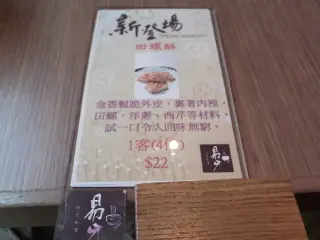 新登場
田螺酥
金香鬆脆外皮，裏著內裡，
田螺、洋蔥、西芹等材料，
試一口令人回味無窮。
1客(4個)
$22
易